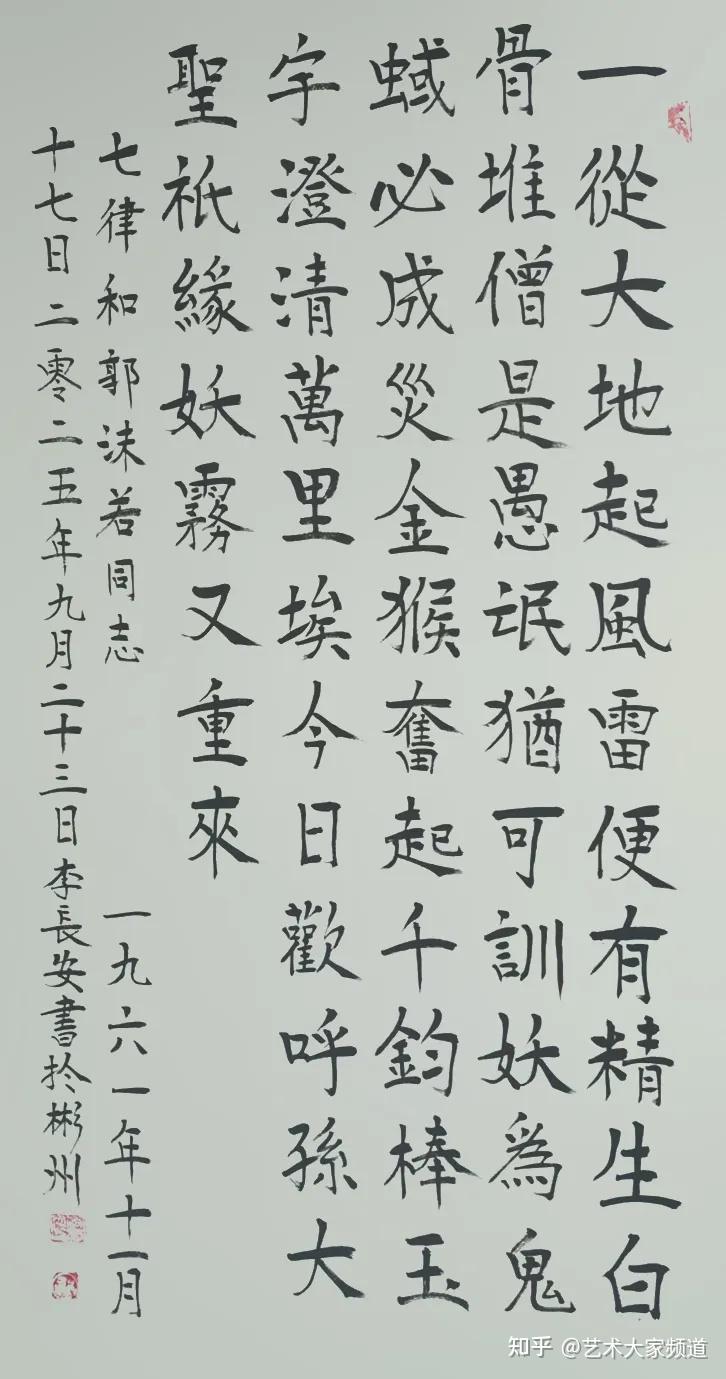 一從大地起風雷便有精生白
骨堆僧是愚氓猶可訓妖爲鬼
蜮必成災金猴奮起千鈞棒玉
宇澄清萬里埃今日歡呼孫大
聖祇緣妖霧又重來
七律和郭沫若同志 一九六一年十一月
十七日二零二五年九月二十三日李長安書扵彬州
知乎 @艺术大家频道